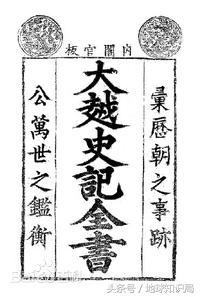 內閣官板
彙歷朝之事跡
大越史記全書
公萬世之鑑衡
头条号 / 地球知识局